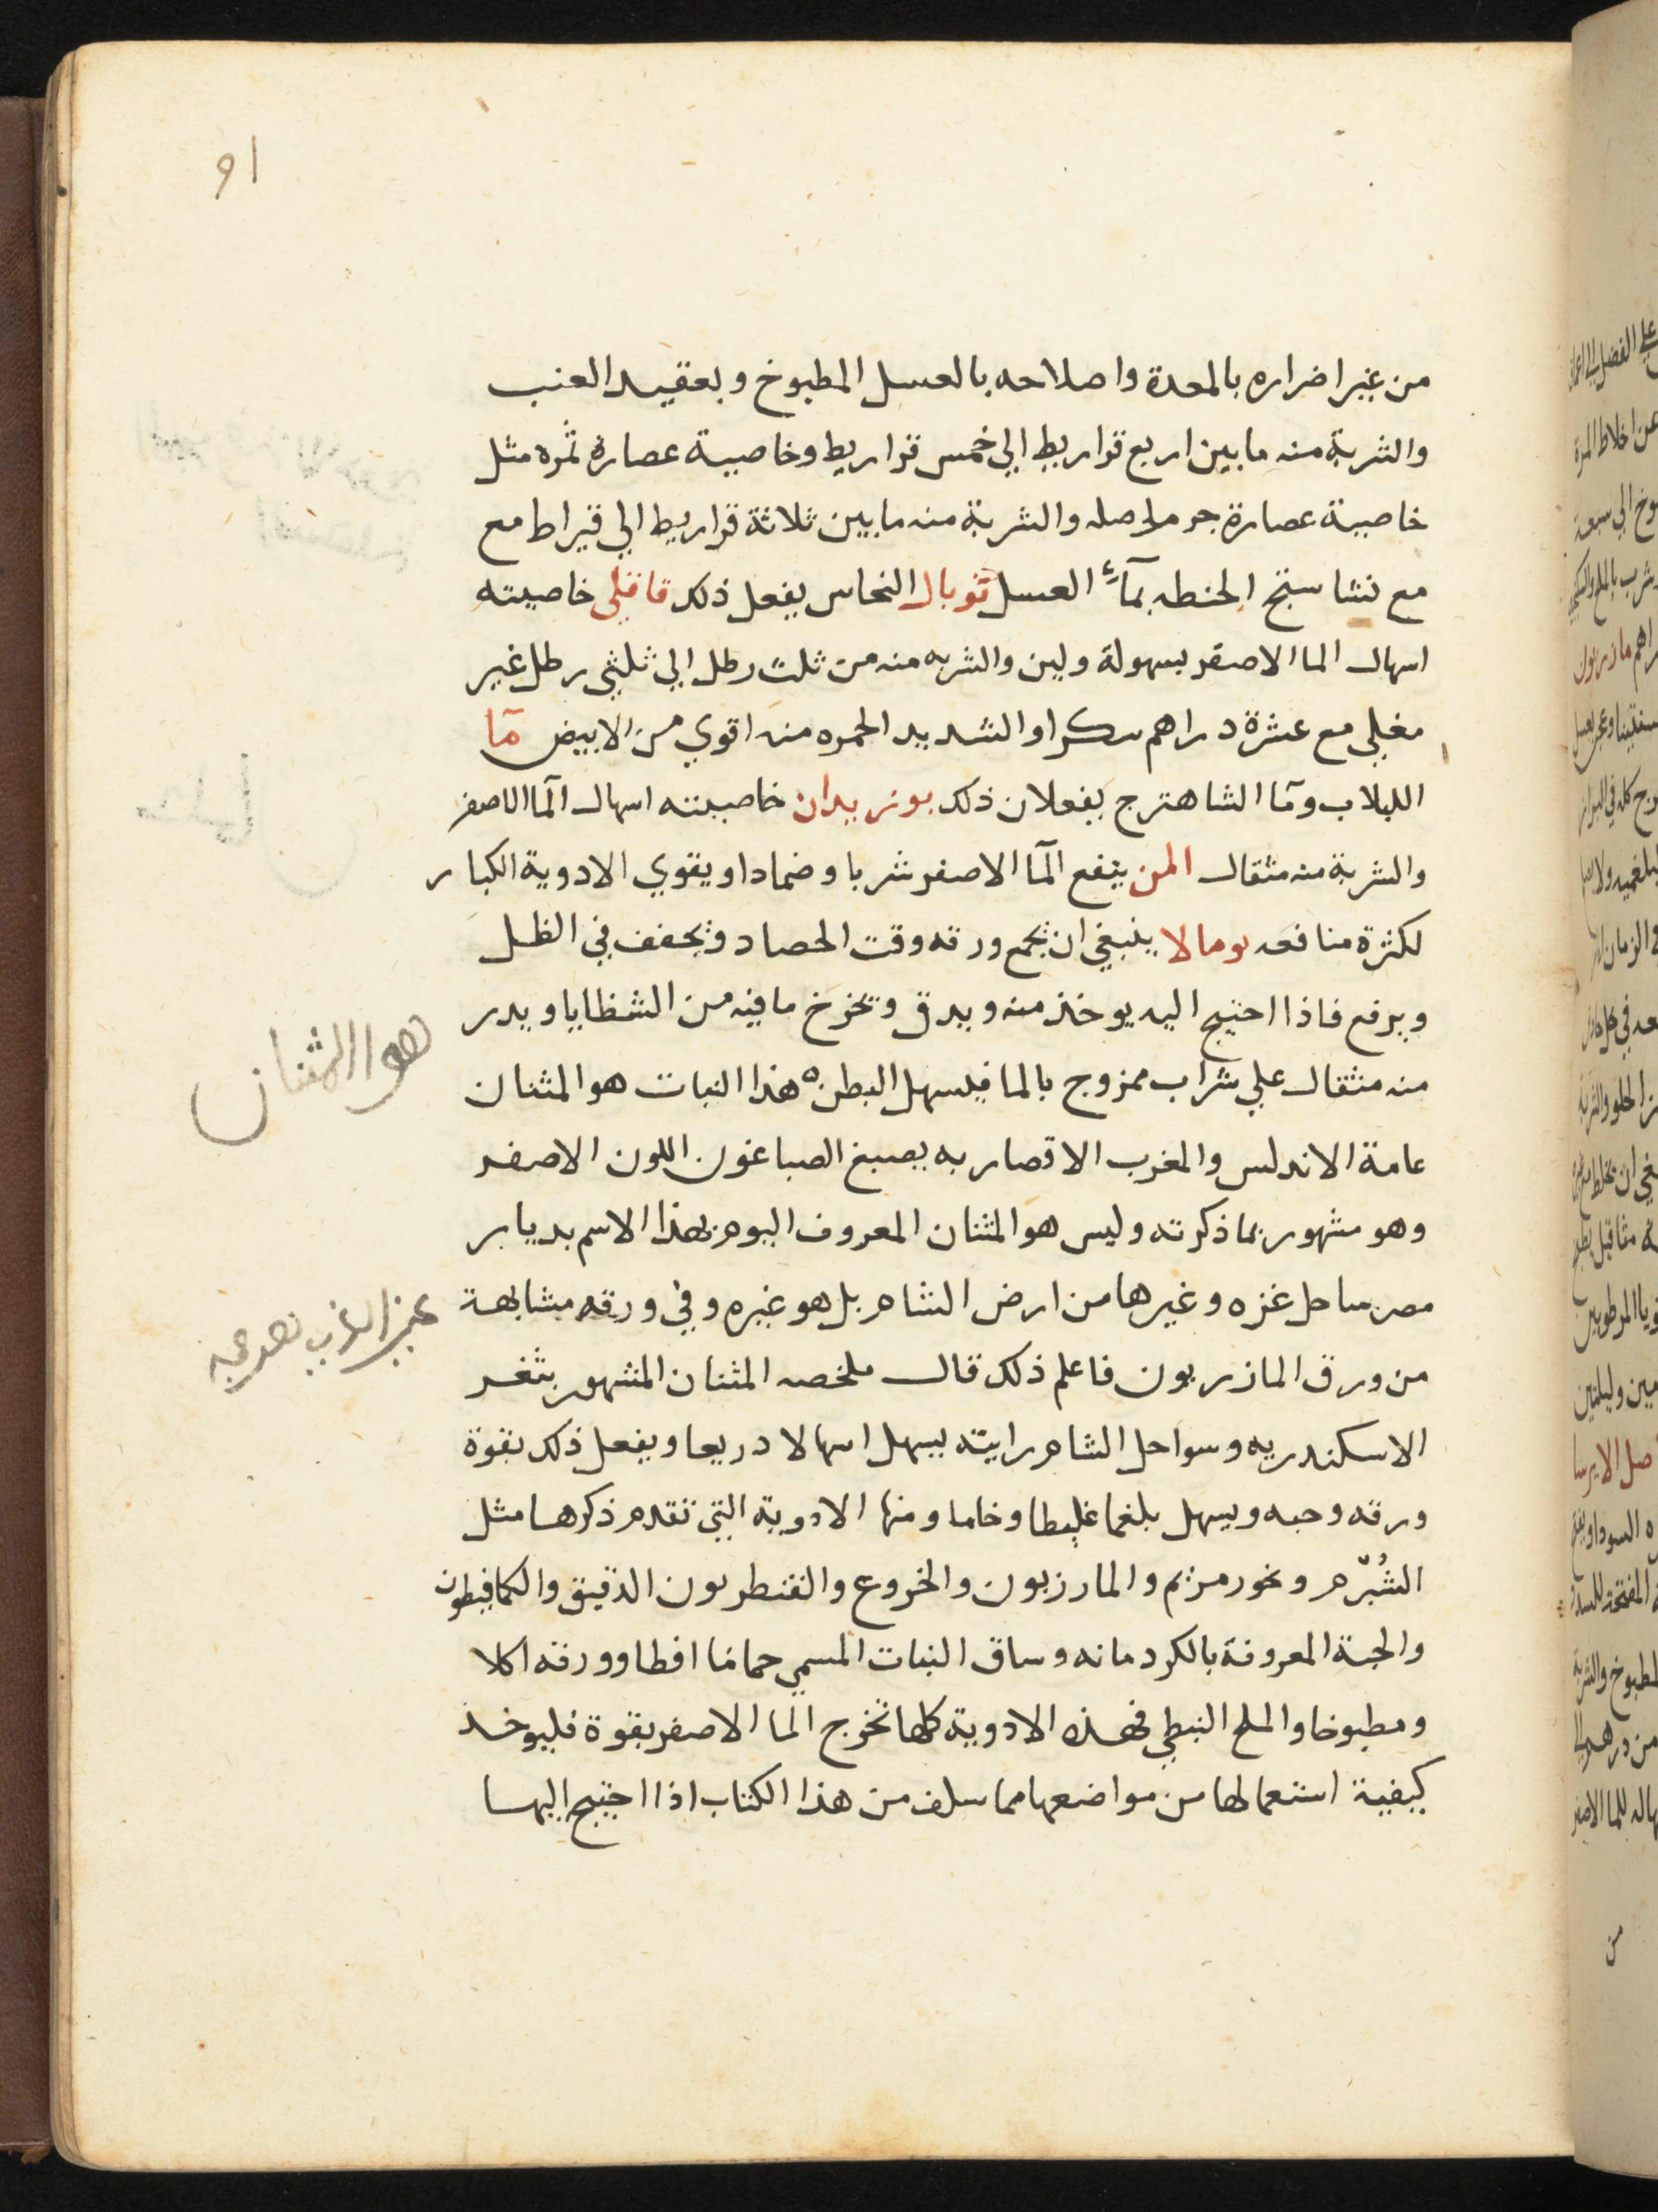 91
من غير اضراره بالمعدة واصلاحه بالعسل المطبوخ وبعقيد العنب
والشربة منه مابين اربع قراريط الي خمس قراريط وخاصية عصارة ثمره مثل
خاصية عصارة جرم اصله والشربة منه مابين ثلاثة قراريط الي قيراط مع
مع نشاستج الحنطه بمآء العسل توبال النحاس يفعل ذلك قاقلي خاصيته
اسهال الما الاصفر بسهولة ولين والشربه منه من ثلث رطل الي ثلثي رطل غير
مغلي مع عشرة دراهم سكرا والشديد الحمره منه اقوي من الابيض مآ
اللبلاب ومآ الشاهترج يفعلان ذلك بوزيدان خاصيته اسهال المآ الاصفر
والشربة منه مثقال المن ينفع المآ الاصفر شربا وضمادا ويقوي الادوية الكبار
لكثرة منافعه يومالا ينبغي ان يجمع ورقه وقت الحصاد ويجفف في الظل
ويرفع فاذا احتيج اليه يوخذ منه ويدق ويخرج مافيه من الشظايا ويدر
منه مثقال علي شراب ممزوج بالما فيسهل البطن ه هذا النبات هو المثنان
هو المثنان
عامة الاندلس والمغرب الاقصار به يصبغ الصباغون اللون الاصفر
وهو مشهور بما ذكرته وليس هو المثنان المعروف اليوم بهذا الاسم بديار
مصر ساحل غزه وغيرها من ارض الشام بل هو غيره وفي ورقه مشابهة
من ورق المازريون فاعلم ذلك قال ملخصه المثنان المشهور بثغر
الاسكندريه وسواحل الشام رايته يسهل اسهالا دريعا ويفعل ذلك بقوة
ورقه وحبه ويسهل بلغما غليظا وخاما ومنها الادوية التي تقدم ذكرها مثل
الشُبّرم وبخور مريم والمازريون والخروع والقنطريون الدقيق والكمافيطون
والحبة المعروفة بالكردمانه وساق النبات المسمي حماما افطا وورقه اكلا
ومطبوخا والملح النبطي فهذه الادوية كلها تخرج الما الاصفر بقوة فليوخذ
كيفية استعمالها من مواضعها مما سلف من هذا الكتاب اذا احتيج اليها